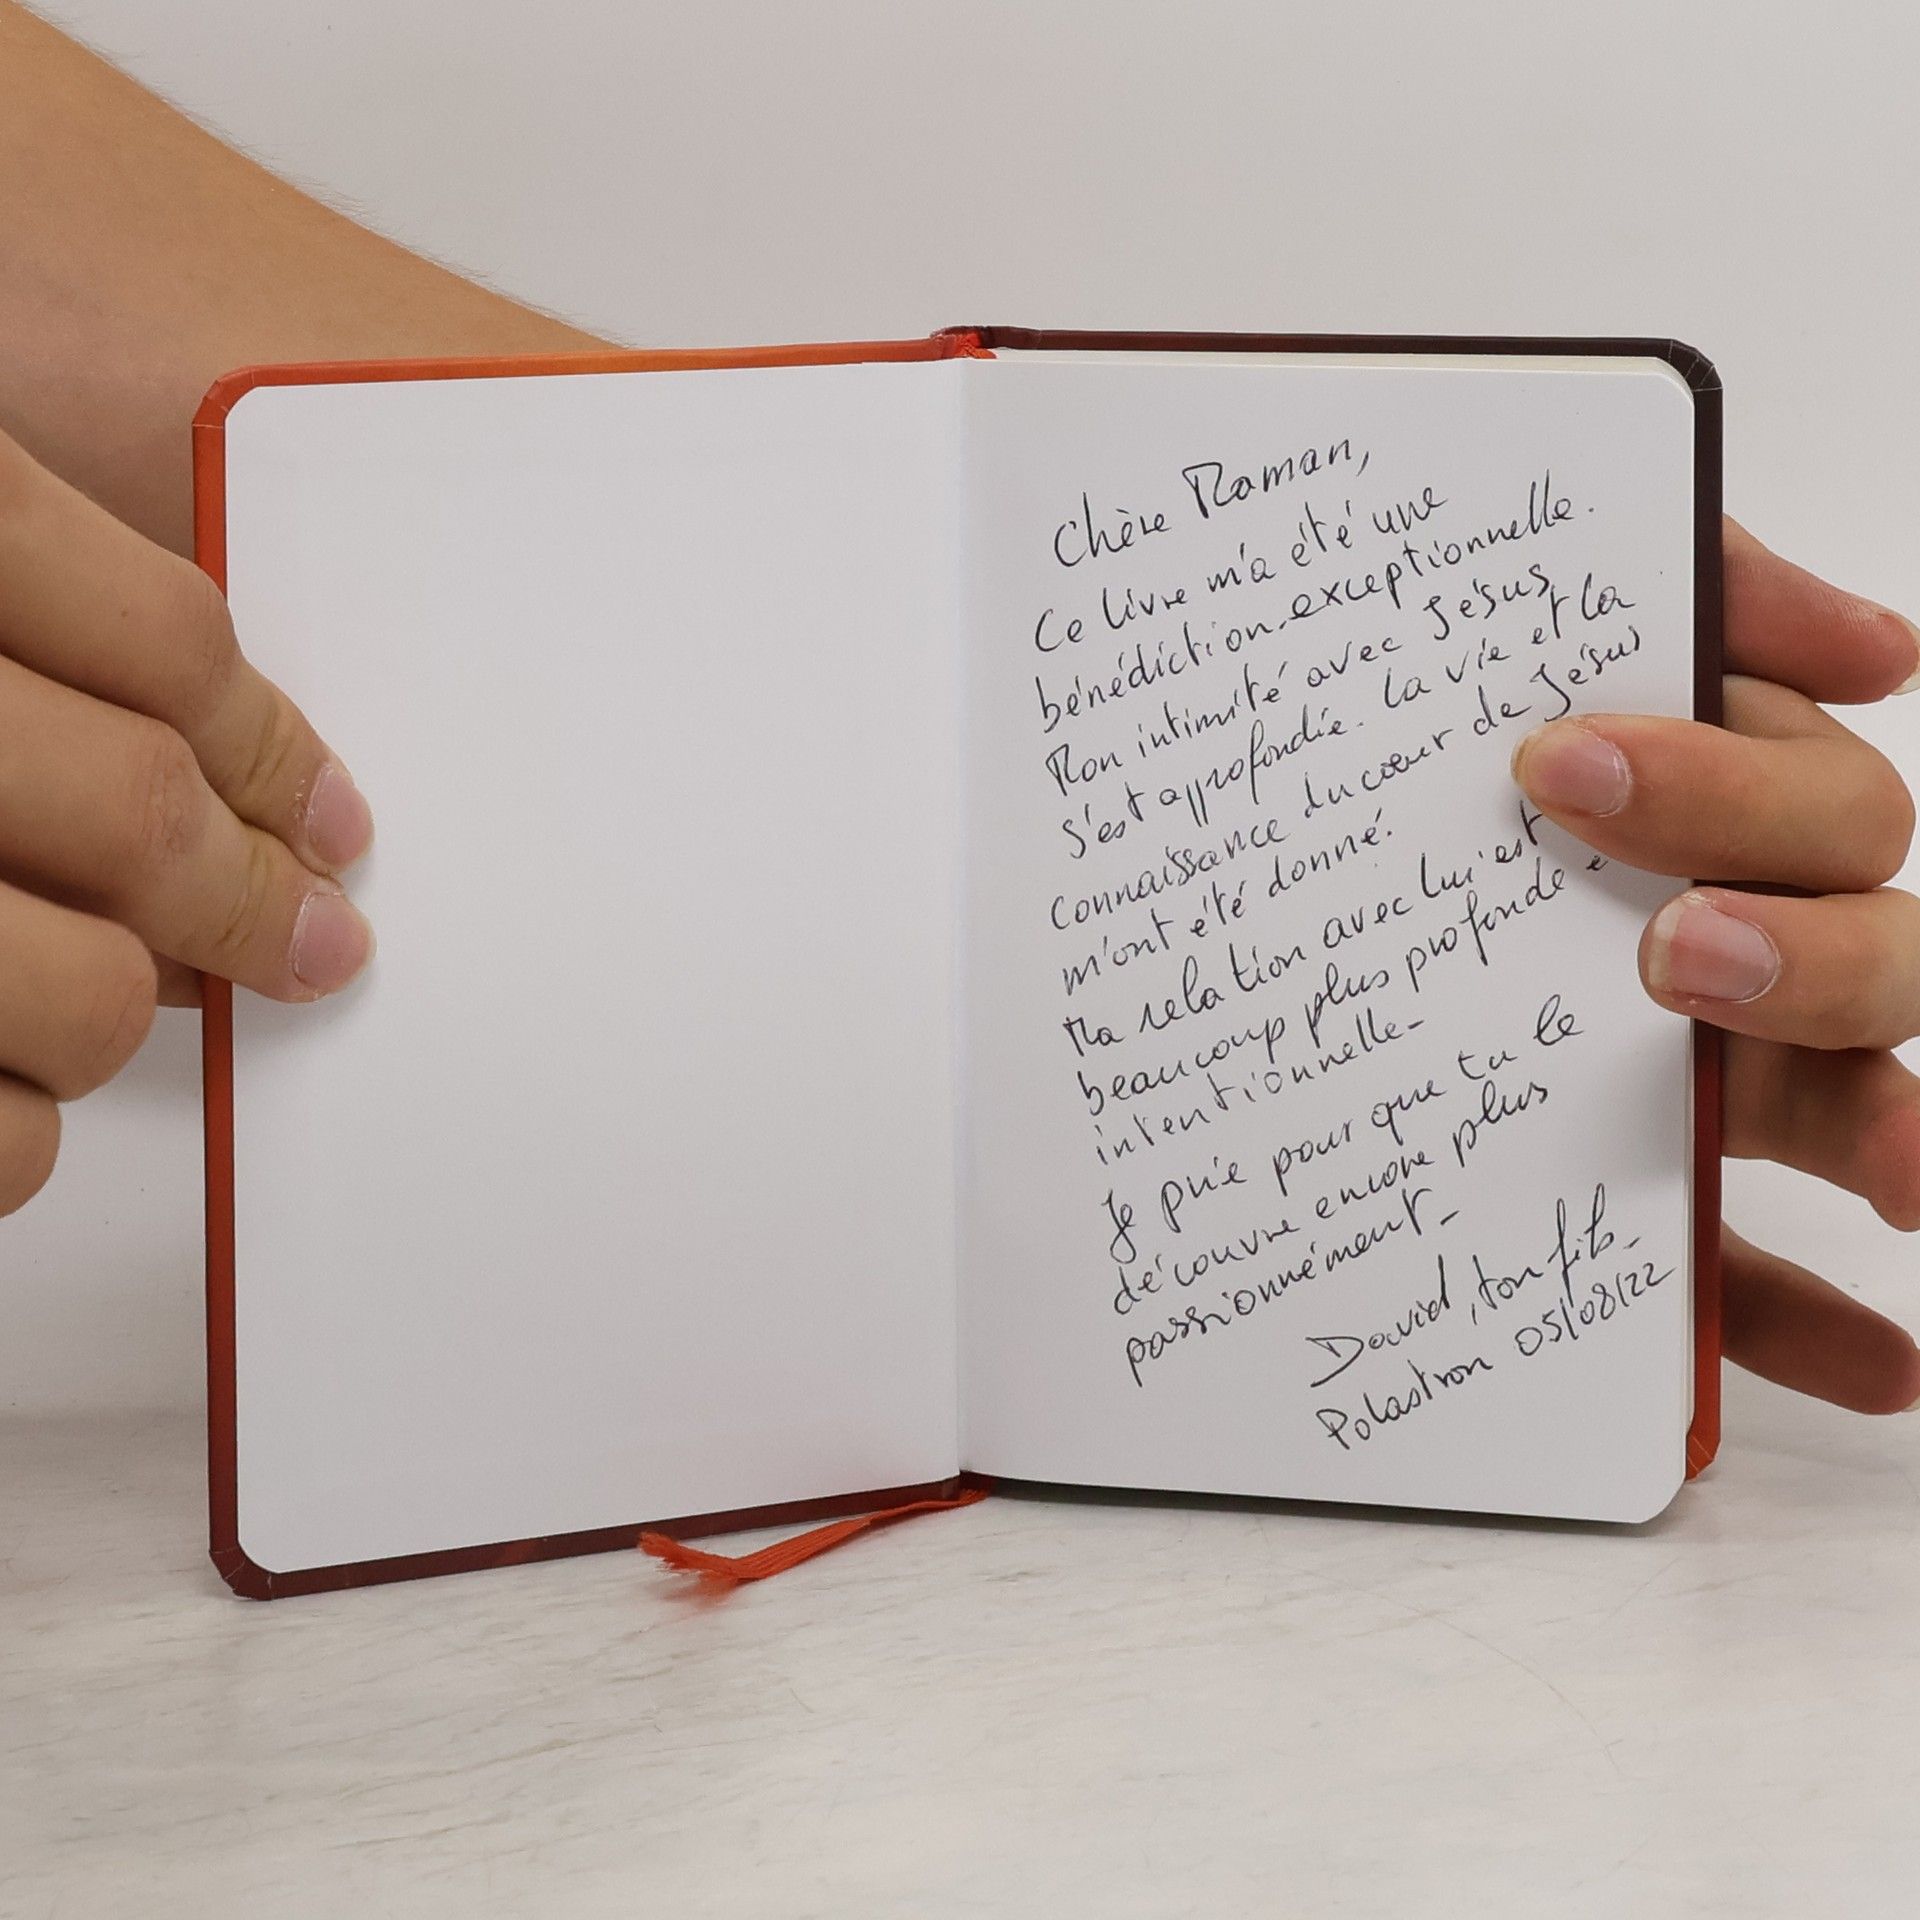 Chère Maman,
Ce livre m'a été une
bénédiction exceptionnelle.
Mon intimité avec Jésus
s'est approfondie. La vie et la
connaissance du cœur de Jésus
m'ont été donné.
Ma relation avec Lui est
beaucoup plus profonde e
intentionnelle-
Je prie pour que tu le
découvre encore plus
passionnément-
David, ton fils-
Polastron 05/08/22